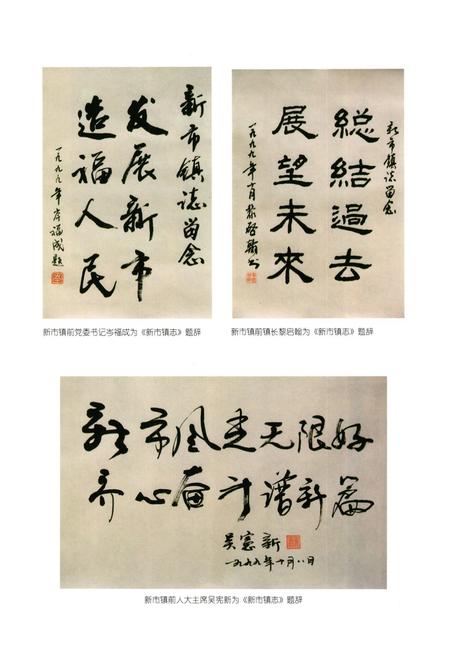 新市镇志留念
发展新市
造福人民
一九九九年岑福成题
新市镇前党委书记岑福成为《新市镇志》题辞
新市镇志留念
總結過去
展望未來
一九九九年十月黎启翰书
新市镇前镇长黎启翰为《新市镇志》题辞
新市风光无限好
齐心奋斗谱新篇
吴憲新
一九九九年十月八日
新市镇前人大主席吴宪新为《新市镇志》题辞